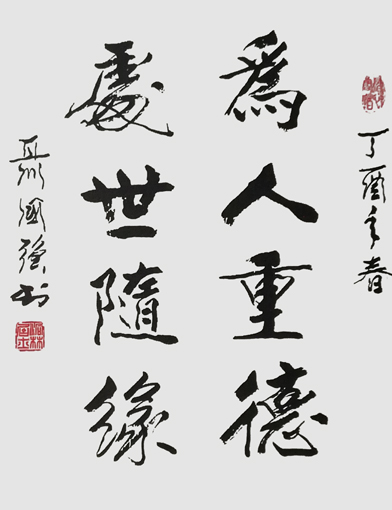 丁酉年春
爲人重德
處世隨緣
聶國強书